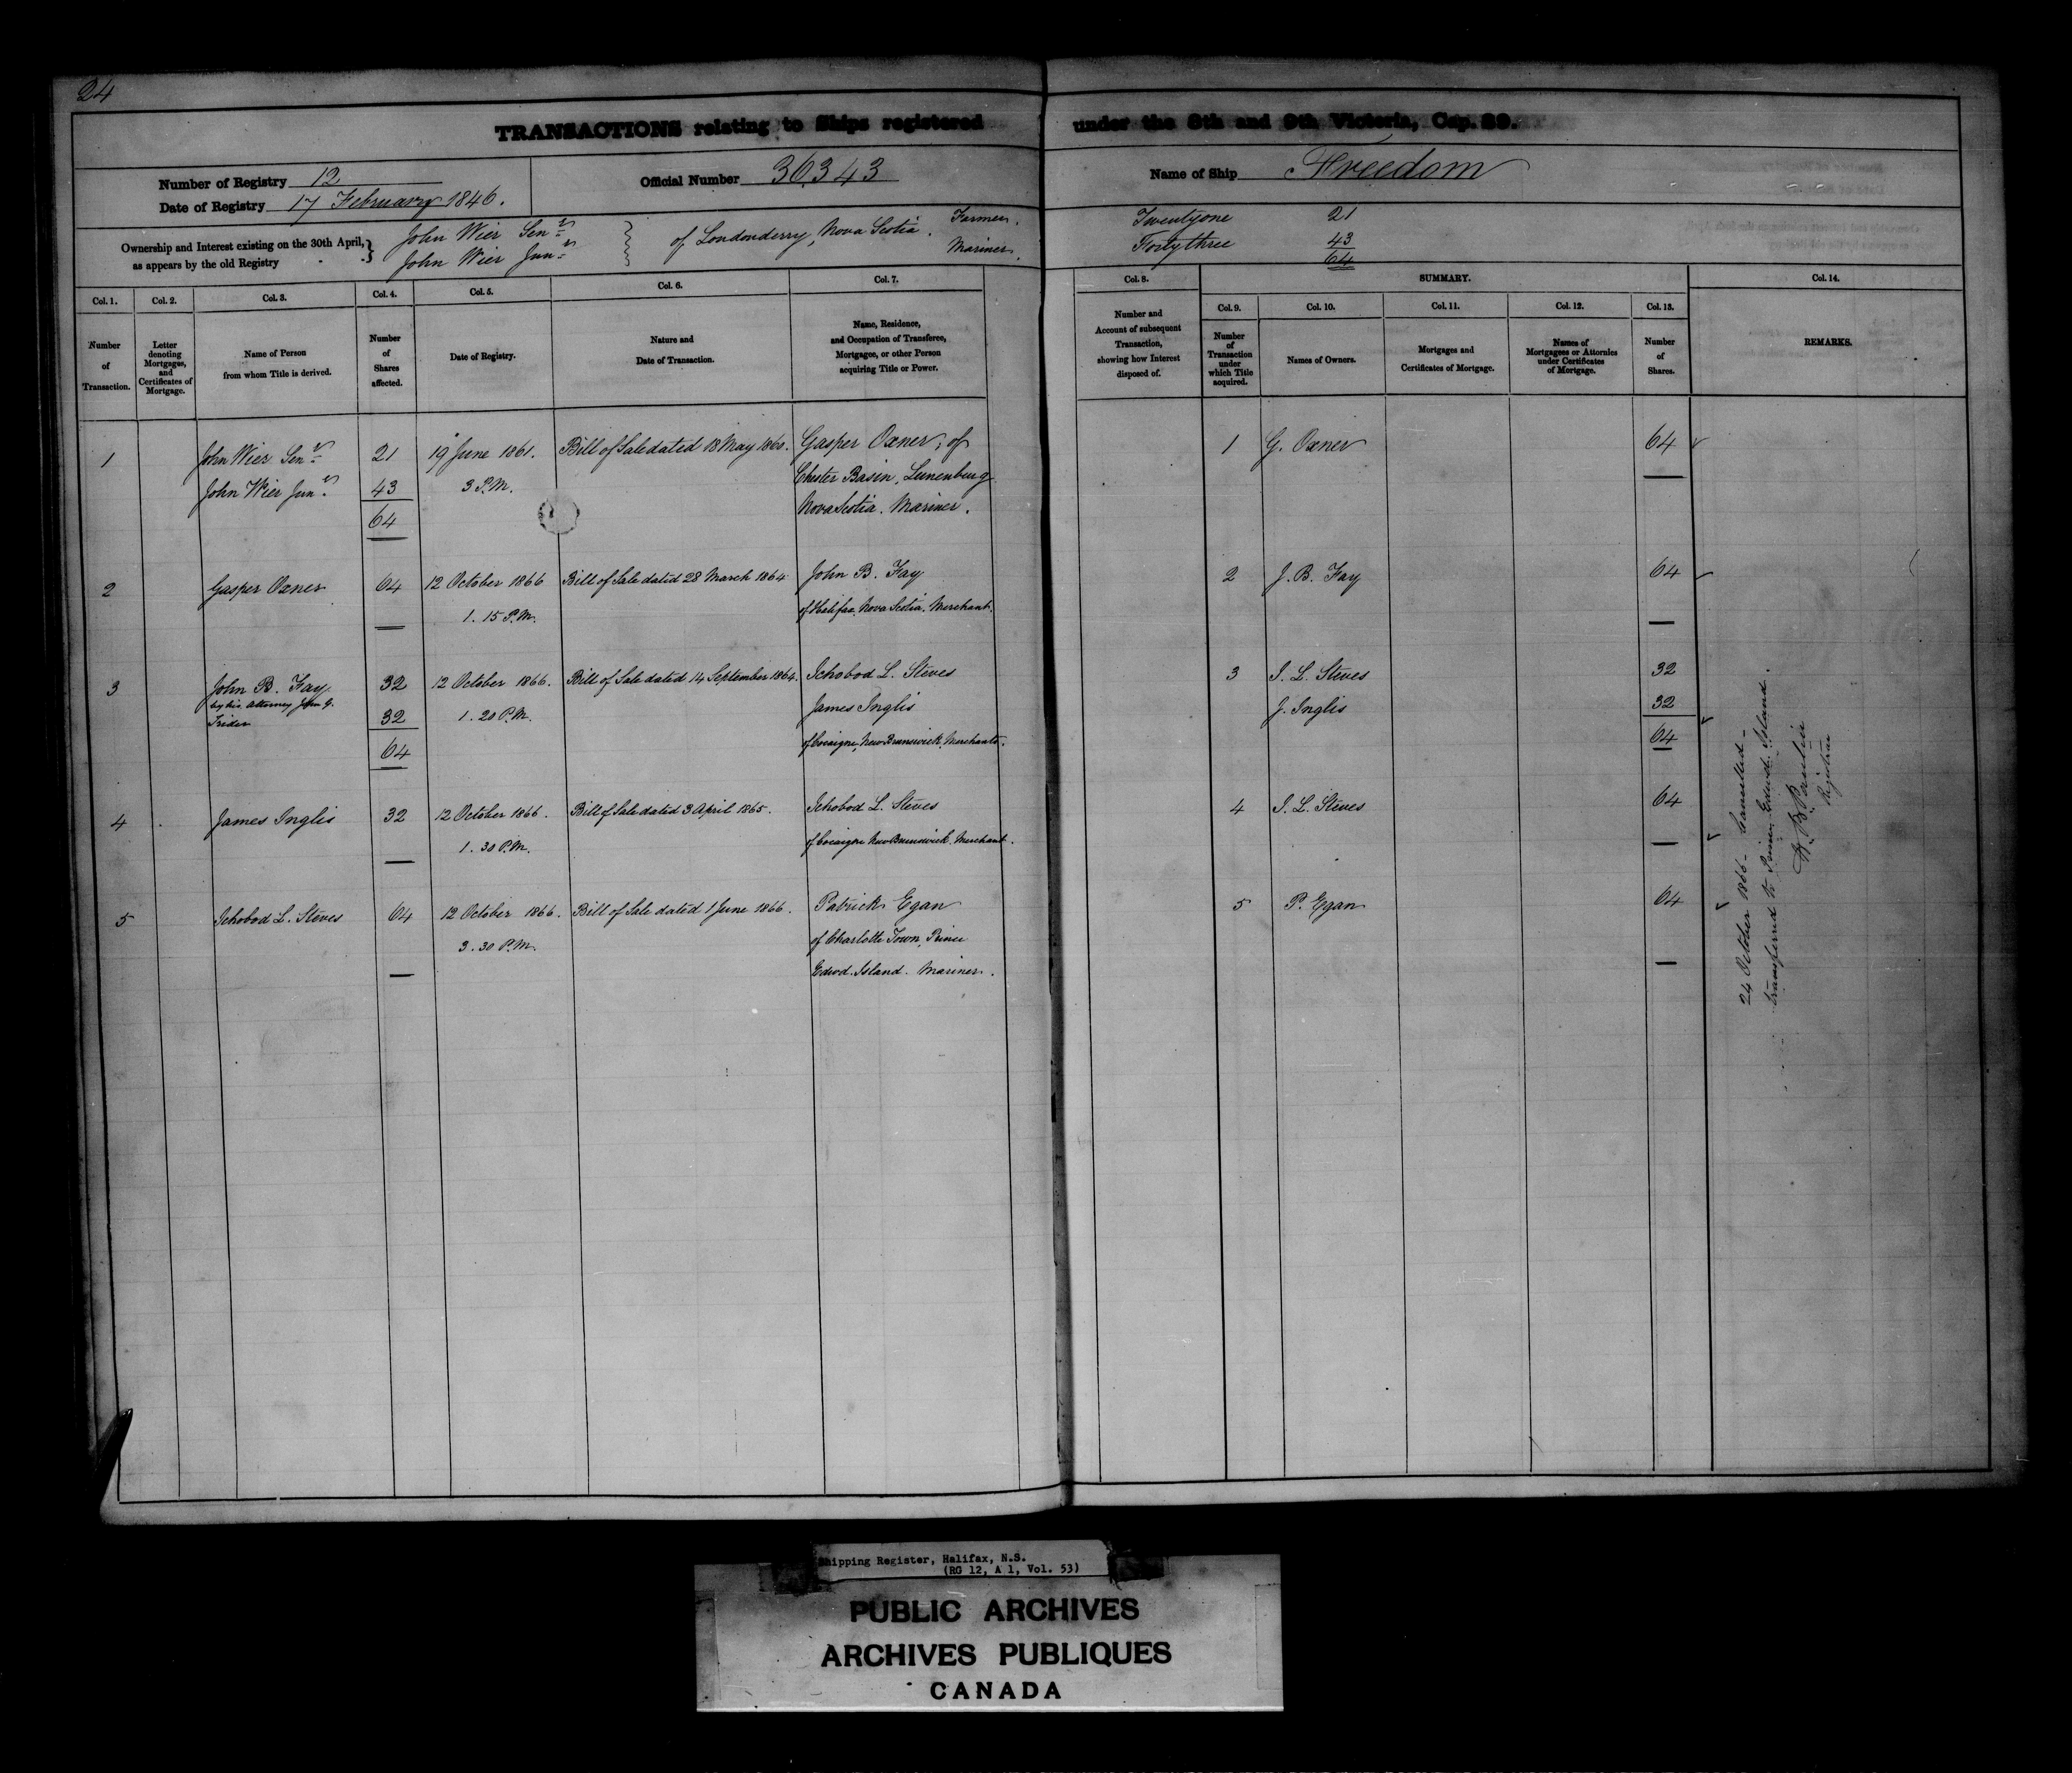 24
TRANSACTIONS relating to Ships registered under the 8th and 9th Victoria, Cap. 89.
Number of Registry 12
Date of Registry 17 February 1846.
Official Number 36343
Name of Ship Freedom
Ownership and Interest existing on the 30th April, as appears by the old Registry
John Wier Senr
John Wier Junr
of Londonderry, Nova Scotia.
Farmer.
Mariner.
Twentyone 21
Forty three 43
64
Col. 1. Col. 2. Col. 3. Col. 4. Col. 5. Col. 6. Col. 7. Col. 8. SUMMARY. Col. 14.
Col. 9. Col. 10. Col. 11. Col. 12. Col. 13.
Number of Transaction.
Letter denoting Mortgages, and Certificates of Mortgage.
Name of Person from whom Title is derived.
Number of Shares affected.
Date of Registry.
Nature and Date of Transaction.
Name, Residence, and Occupation of Transferee, Mortgagee, or other Person acquiring Title or Power.
Number and Account of subsequent Transaction, showing how Interest disposed of.
Number of Transaction under which Title acquired.
Names of Owners.
Mortgages and Certificates of Mortgage.
Names of Mortgagees or Attornies under Certificates of Mortgage.
Number of Shares.
REMARKS.
1 John Wier Senr 21 19 June 1861. Bill of Sale dated 18 May 1860. Gasper Oxner, of 1 G. Oxner 64
John Wier Junr 43 3 P.M. Chester Basin, Lunenburg
64 Nova Scotia. Mariner.
2 Gasper Oxner 64 12 October 1866 Bill of Sale dated 28 March 1864 John B. Fay 2 J. B. Fay 64
1. 15 P.M. of Halifax Nova Scotia. Merchant.
3 John B. Fay 32 12 October 1866. Bill of Sale dated 14 September 1864. Ichobod L. Steves 3 I. L. Steves 32
by his Attorney John G.
32 1. 20 P.M. James Inglis J. Inglis 32
64 of Cocaigne, New Brunswick, Merchants. 64
4 James Inglis 32 12 October 1866. Bill of Sale dated 3 April 1865. Ichobod L. Steves 4 I. L. Steves 64
1. 30 P.M. of Cocaigne New Brunswick. Merchant.
5 Ichobod L. Steves 64 12 October 1866. Bill of Sale dated 1 June 1866. Patrick Egan 5 P. Egan 64
3. 30 P.M. of Charlotte Town, Prince
Edwd. Island. Mariner.
24 October 1866 - Cancelled -
transferred to Prince Edwd. Island.
Registrar
Shipping Register, Halifax, N.S.
(RG 12, A 1, Vol. 53)
PUBLIC ARCHIVES
ARCHIVES PUBLIQUES
CANADA